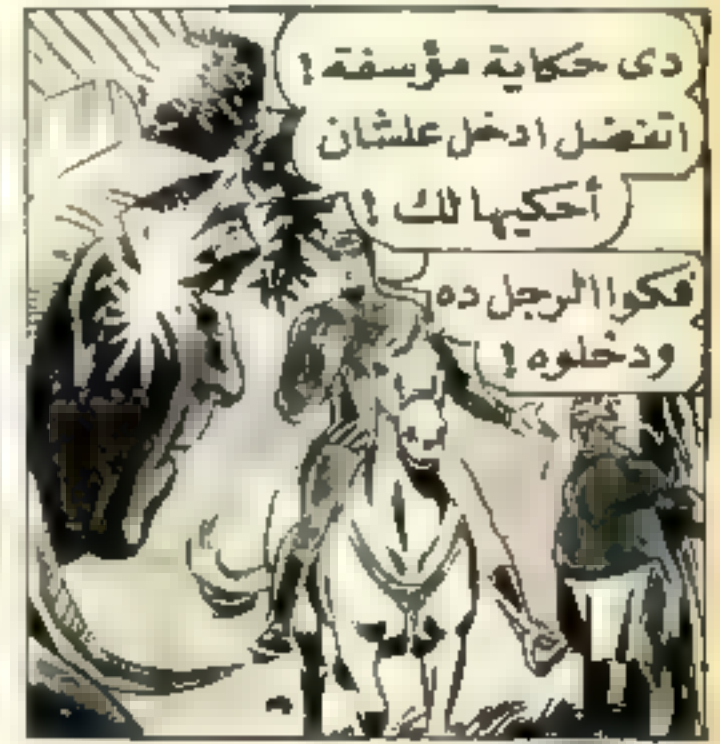 دى حكاية مؤسفة !
اتفضل ادخل علشان
أحكيها لك !
فكوا الرجل ده
ودخلوه !